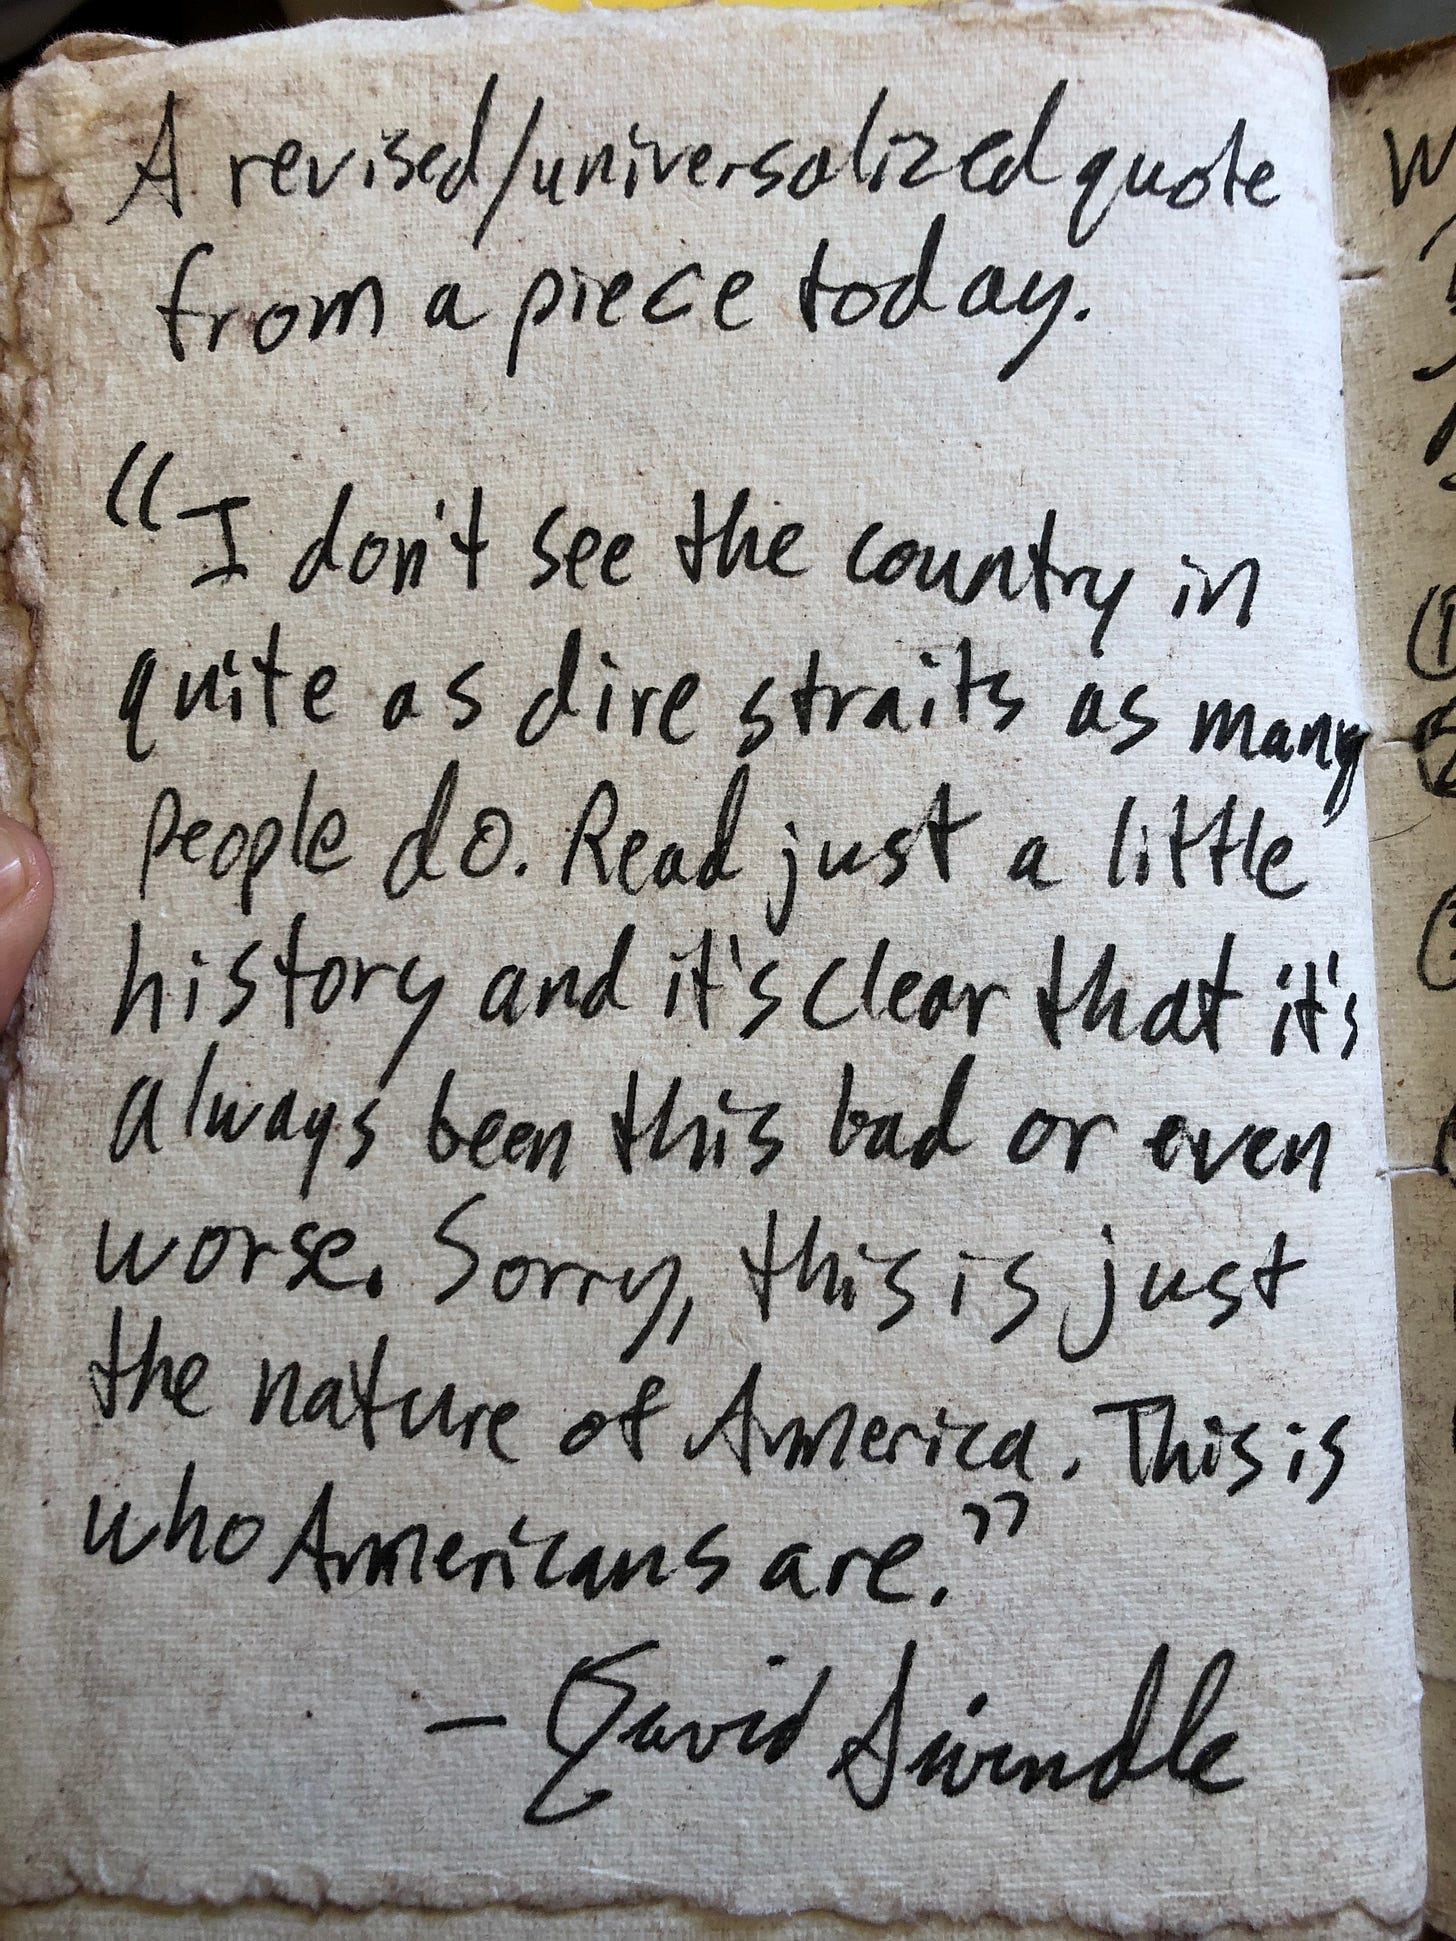 A revised/universalized quote
from a piece today.
"I don't see the country in
quite as dire straits as many
people do. Read just a little
history and it's clear that it's
always been this bad or even
worse. Sorry, this is just
the nature of America. This is
who Americans are."
— David Swindle
W
1
2